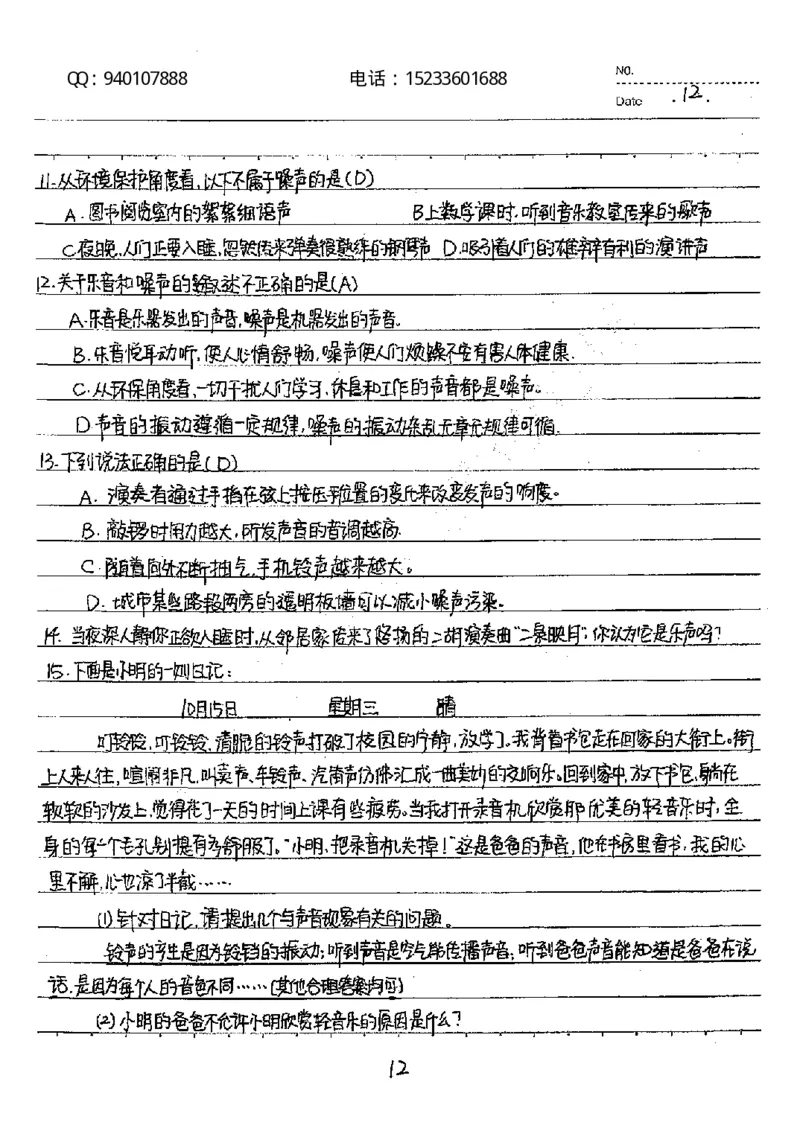 QQ：940107888 电话：15233601688 No.
Date .12.
11.从环境保护角度看,以下不属于噪声的是(D)
A.图书阅览室内的絮絮细语声 B上数学课时,听到音乐教室传来的歌声
C夜晚,人们正要入睡,忽然传来弹奏很熟练的钢琴声 D.吸引着人们的雄辩有利的演讲声
12.关于乐音和噪声的叙述不正确的是(A)
A.乐音是乐器发出的声音,噪声是机器发出的声音。
B.乐音悦耳动听,使人心情舒畅,噪声使人们烦躁不安有害人体健康.
C.从环保角度看,一切干扰人们学习、休息和工作的声音都是噪声。
D声音的振动遵循一定规律,噪声的振动杂乱无章无规律可循.
13.下列说法正确的是(D)
A.演奏者通过手指在弦上按压位置的变化来改变发声的响度。
B.敲锣时用力越大,所发声音的音调越高.
C.随着向外不断抽气,手机铃声越来越大。
D.城市某些路段两旁的透明板墙可以减小噪声污染.
14.当夜深人静你正欲入睡时,从邻居家传来了悠扬的二胡演奏曲"二泉映月",你认为它是乐声吗?
15.下面是小明的一则日记:
10月15日 星期三 晴
叮铃铃,叮铃铃,清脆的铃声打破了校园的宁静,放学了。我背着书包走在回家的大街上。街
上人来人往,喧闹非凡,叫卖声、车铃声、汽笛声仿佛汇成一曲美妙的交响乐。回到家中,放下书包,躺在
软软的沙发上,觉得花了一天的时间上课有些疲劳。当我打开录音机欣赏那优美的轻音乐时,全
身的每个毛孔别提有多舒服了。"小明,把录音机关掉!"这是爸爸的声音,他在书房里看书,我的心
里不解,心也凉了半截……
(1)针对日记,请提出几个与声音现象有关的问题。
铃声的产生是因为铃铛的振动;听到声音是空气能传播声音;听到爸爸声音能知道是爸爸在说
话,是因为每个人的音色不同……(其他合理答案均可)
(2)小明的爸爸不允许小明欣赏轻音乐的原因是什么?
12